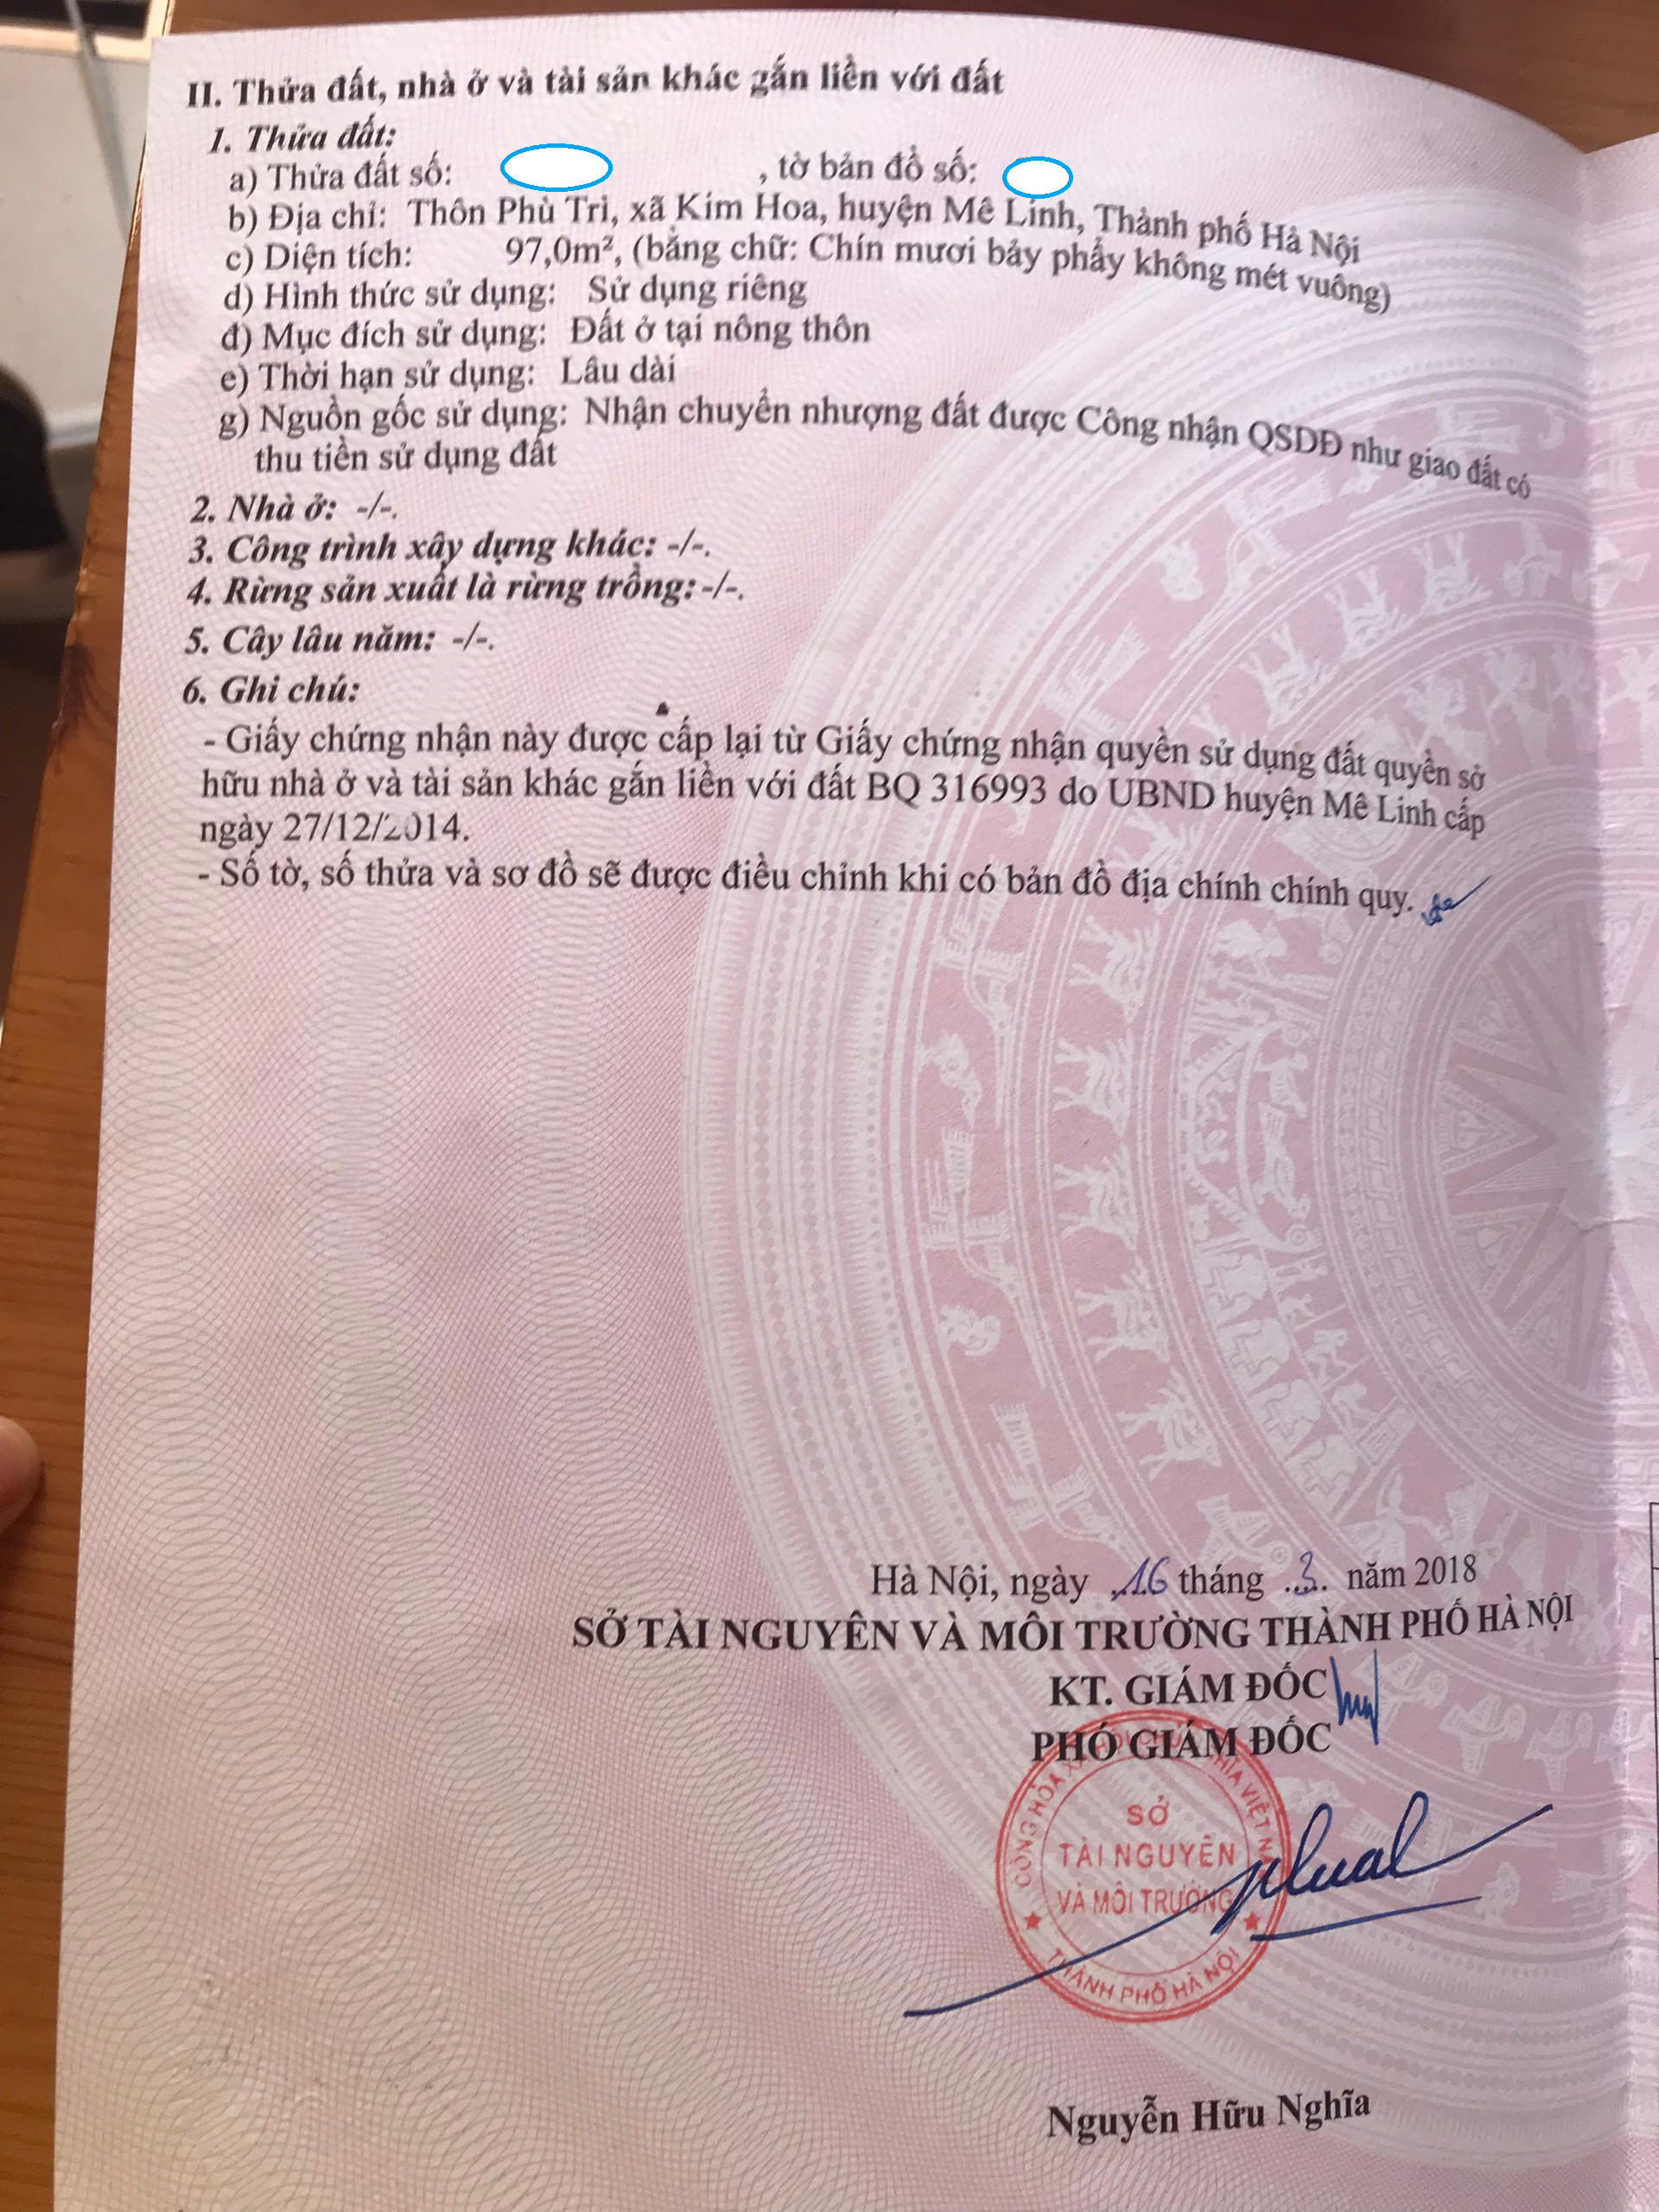 II. Thửa đất, nhà ở và tài sản khác gắn liền với đất
1. Thửa đất:
a) Thửa đất số: , tờ bản đồ số:
b) Địa chỉ: Thôn Phù Trì, xã Kim Hoa, huyện Mê Linh, Thành phố Hà Nội
c) Diện tích: 97,0m², (bằng chữ: Chín mươi bảy phẩy không mét vuông)
d) Hình thức sử dụng: Sử dụng riêng
đ) Mục đích sử dụng: Đất ở tại nông thôn
e) Thời hạn sử dụng: Lâu dài
g) Nguồn gốc sử dụng: Nhận chuyển nhượng đất được Công nhận QSDĐ như giao đất có
thu tiền sử dụng đất
2. Nhà ở: -/-.
3. Công trình xây dựng khác: -/-.
4. Rừng sản xuất là rừng trồng: -/-.
5. Cây lâu năm: -/-.
6. Ghi chú:
- Giấy chứng nhận này được cấp lại từ Giấy chứng nhận quyền sử dụng đất quyền sở
hữu nhà ở và tài sản khác gắn liền với đất BQ 316993 do UBND huyện Mê Linh cấp
ngày 27/12/2014.
- Số tờ, số thửa và sơ đồ sẽ được điều chỉnh khi có bản đồ địa chính chính quy.
Hà Nội, ngày 16 tháng 3 năm 2018
SỞ TÀI NGUYÊN VÀ MÔI TRƯỜNG THÀNH PHỐ HÀ NỘI
KT. GIÁM ĐỐC
PHÓ GIÁM ĐỐC
SỞ
TÀI NGUYÊN
VÀ MÔI TRƯỜNG
THÀNH PHỐ HÀ NỘI
Nguyễn Hữu Nghĩa